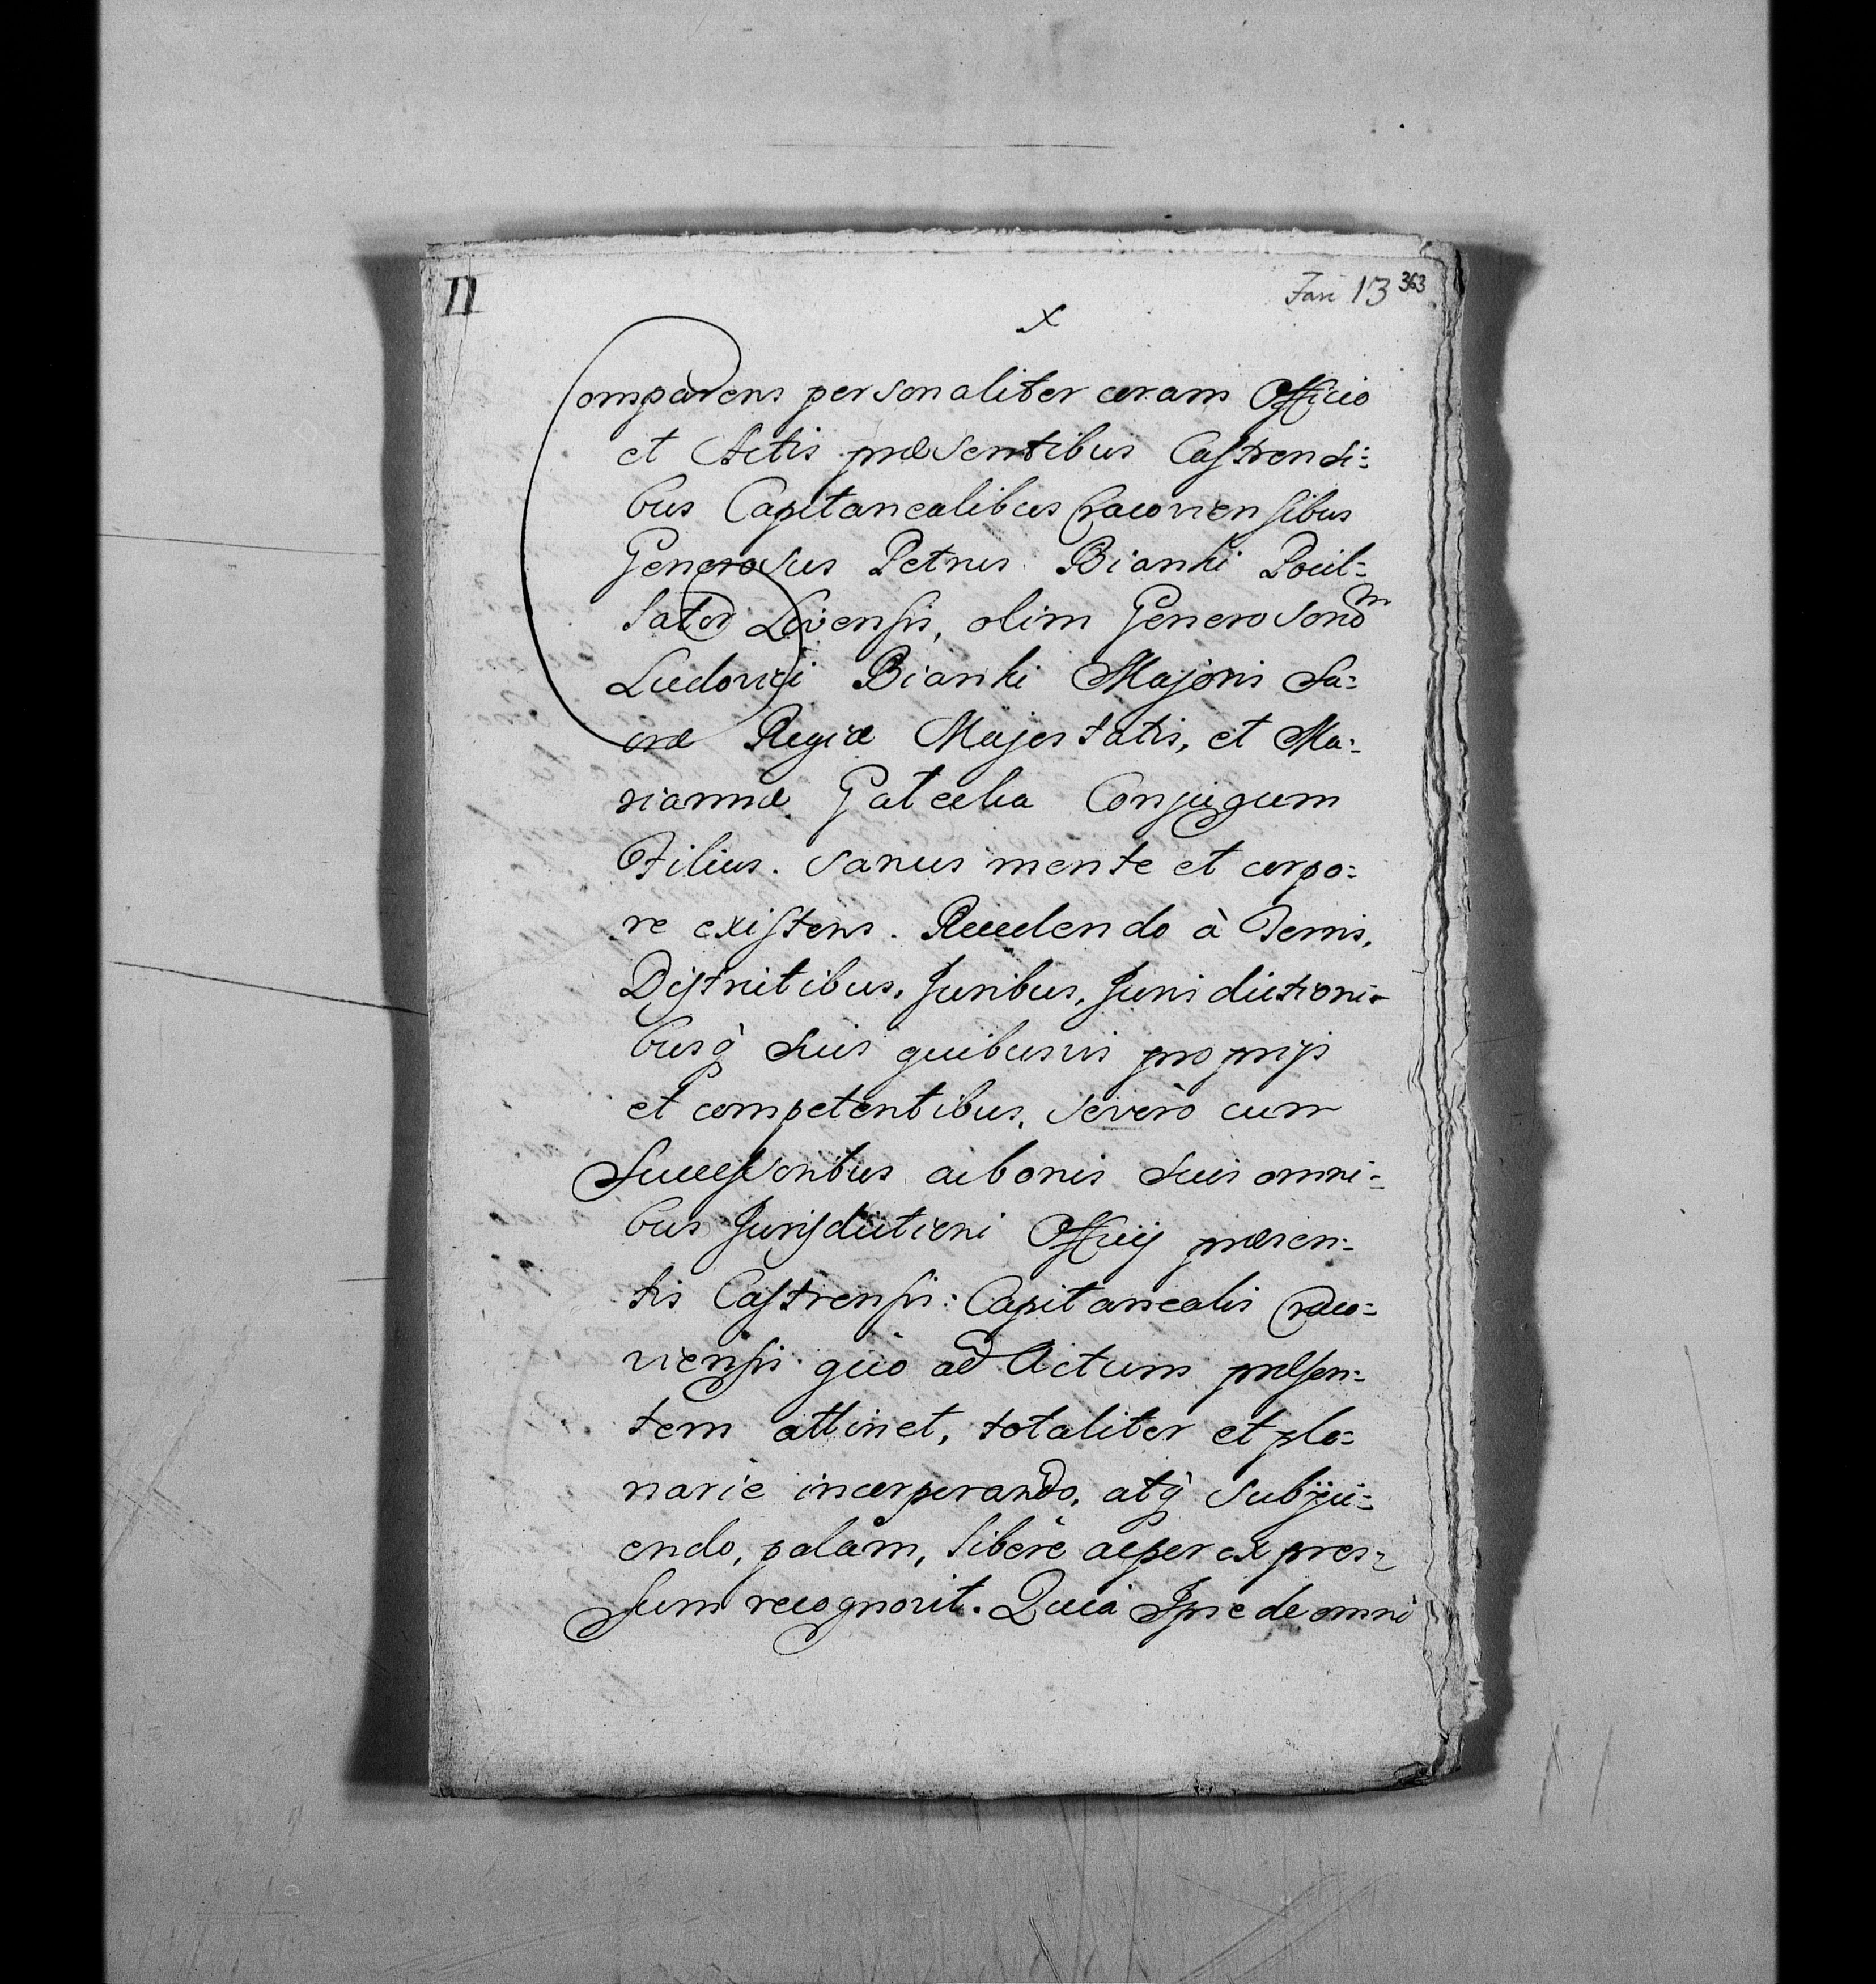 II
Jan 13 363
x
Comparens personaliter coram Officio
et Actis præsentibus Castrensi=
bus Capitanealibus Cracoviensibus
Generosus Petrus Bianki Pocil=
lator Livensis, olim Generosorum
Ludovici Bianki Majoris Sa=
cræ Regiæ Majestatis, et Ma=
riannæ Conjugum
Filius. Sanus mente et corpo=
re existens. Recedendo à Terris,
Districtibus, Juribus, Jurisdictioni=
busq̀ suis quibusvis proprijs
et competentibus, severò cum
Successoribus ac bonis suis omni=
bus Jurisdictioni Officij præsen=
tis Castrensis: Capitanealis Craco=
viensis quo ad Actum præsen=
tem attinet, totaliter et ple=
narie incorporando, atq̀ subijci=
endo, palàm, liberè ac per expres=
sum recognovit. Quia Ipse de omni